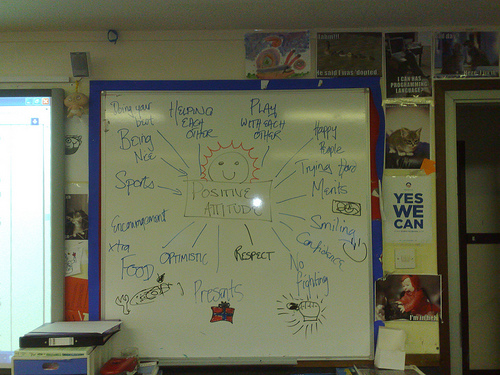 Doing your
best
HELPING
EACH
OTHER
PLAY
WITH EACH
OTHER
Being
Nice
Happy
People
Sports
POSITIVE
ATTITUDE
Trying for
Merits
Encouragement
Smiling
Confidence
xtra
FOOD
OPTIMISTIC
RESPECT
No
Fighting
Presents
He said I was 'dopted
I CAN HAS
PROGRAMMING
LANGUAGE?
YES
WE
CAN